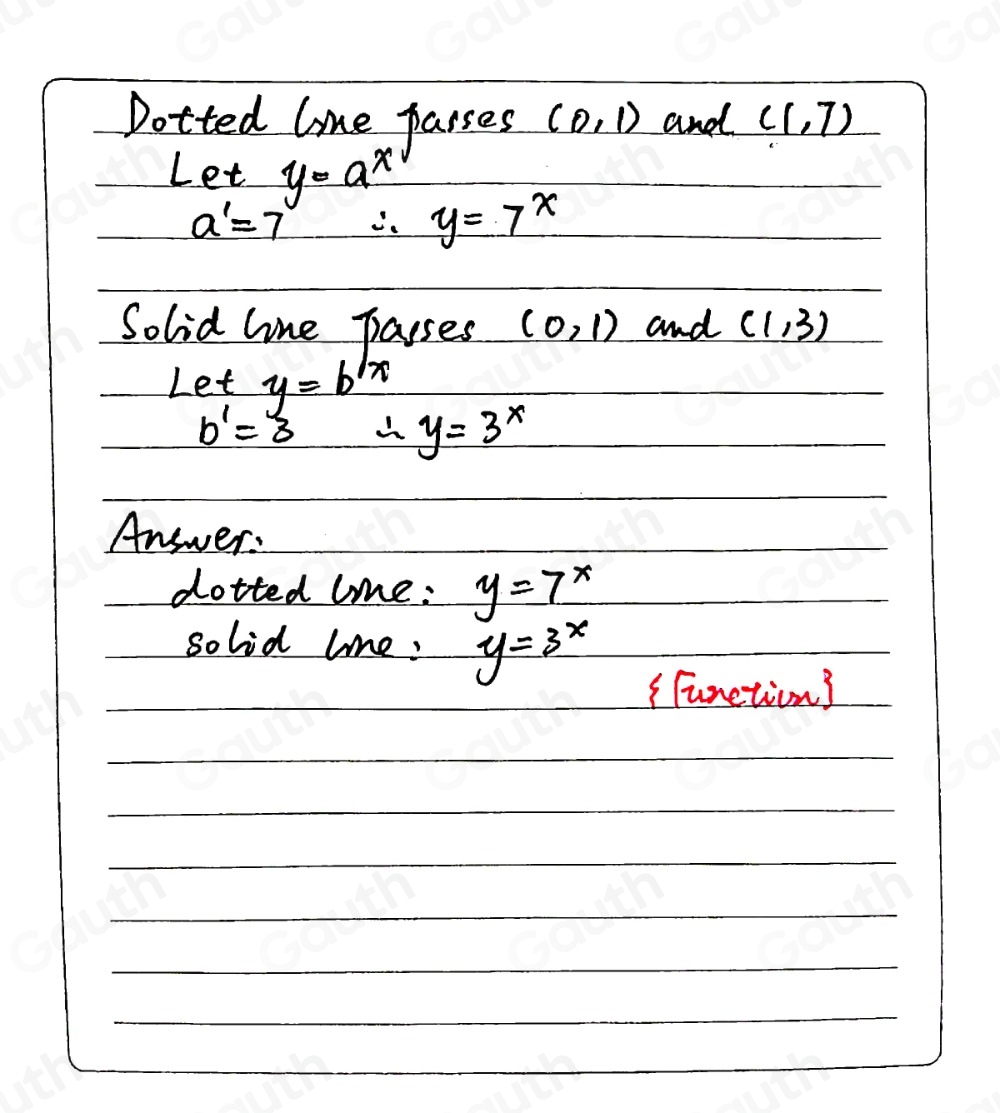 Dotted line passes (0,1) and (1,7)
Let y = aˣ
a¹ = 7 ∴ y = 7ˣ
Solid line passes (0,1) and (1,3)
Let y = bˣ
b¹ = 3 ∴ y = 3ˣ
Answer:
dotted line: y = 7ˣ
solid line: y = 3ˣ
{Function}
Gauth